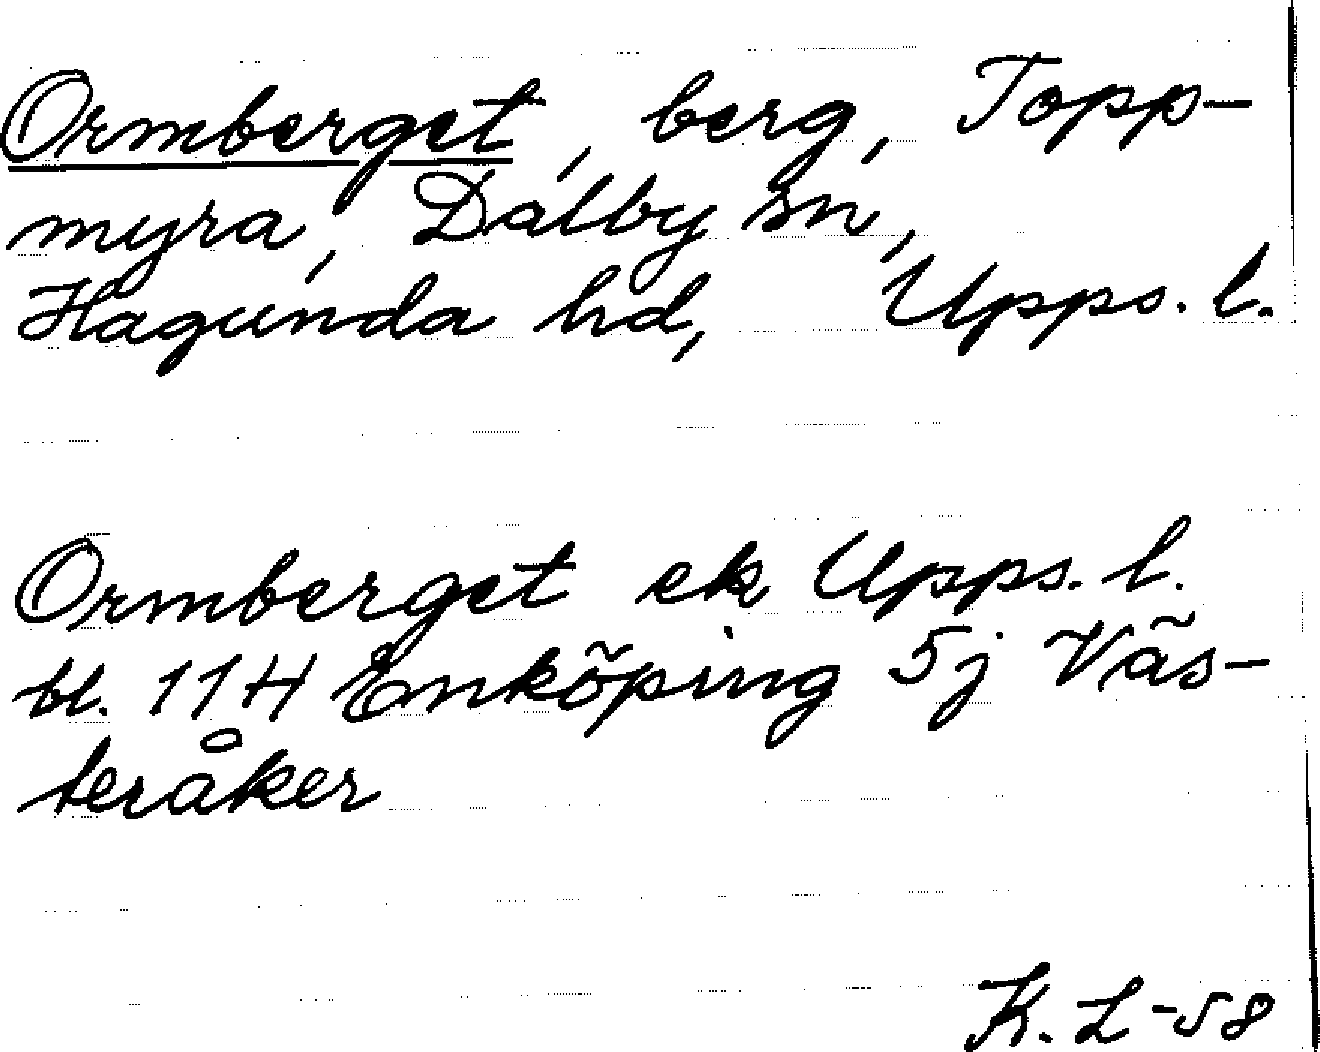 Ormberget, berg, Topp-
myra, Dalby sn,
Hagunda hd, Upps. l.
Ormberget ek Upps. l.
bl. 11H Enköping 5j Väs-
teråker
K. L -58